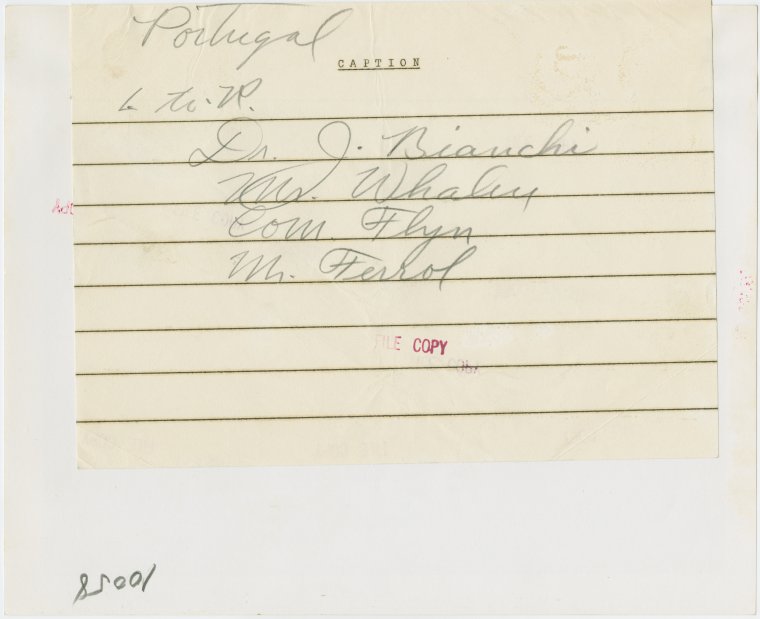 Portugal
CAPTION
L to R.
Dr. J. Bianchi
Mr. Whalen
Com. Flyn
Mr. Ferrol
FILE COPY